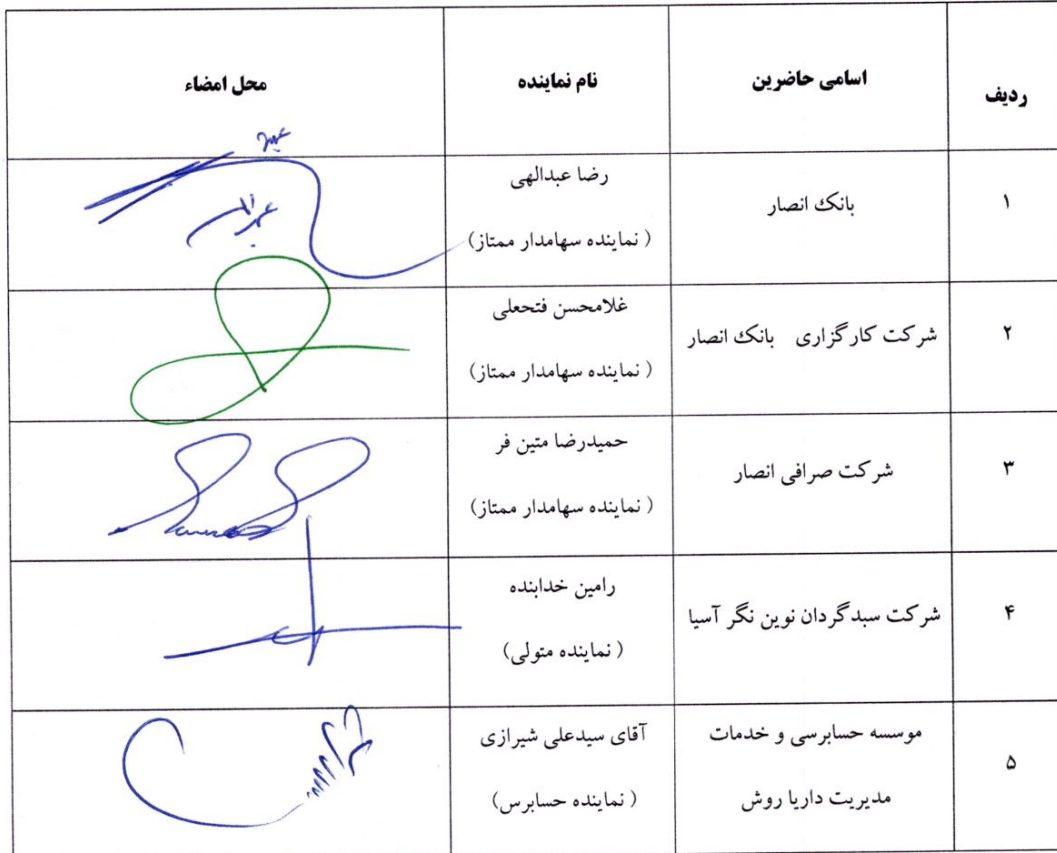 ردیف
اسامی حاضرین
نام نماینده
محل امضاء
۱
بانک انصار
رضا عبدالهی
( نماینده سهامدار ممتاز)
۲
شرکت کارگزاری بانک انصار
غلامحسن فتحعلی
( نماینده سهامدار ممتاز)
۳
شرکت صرافی انصار
حمیدرضا متین فر
( نماینده سهامدار ممتاز)
۴
شرکت سبدگردان نوین نگر آسیا
رامین خدابنده
( نماینده متولی)
۵
موسسه حسابرسی و خدمات
مدیریت داریا روش
آقای سیدعلی شیرازی
( نماینده حسابرس)